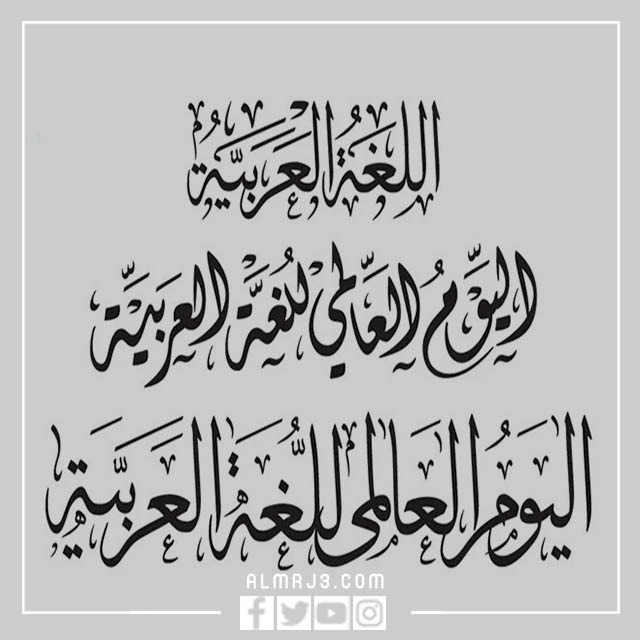 اللغةُ العَرَبيَّةُ
اليَّومُ العَالمي للُغَّة العَرَبيَّة
اليَومُ العَالمي للُّغَة العَرَبيَّة
ALMRJ3.COM